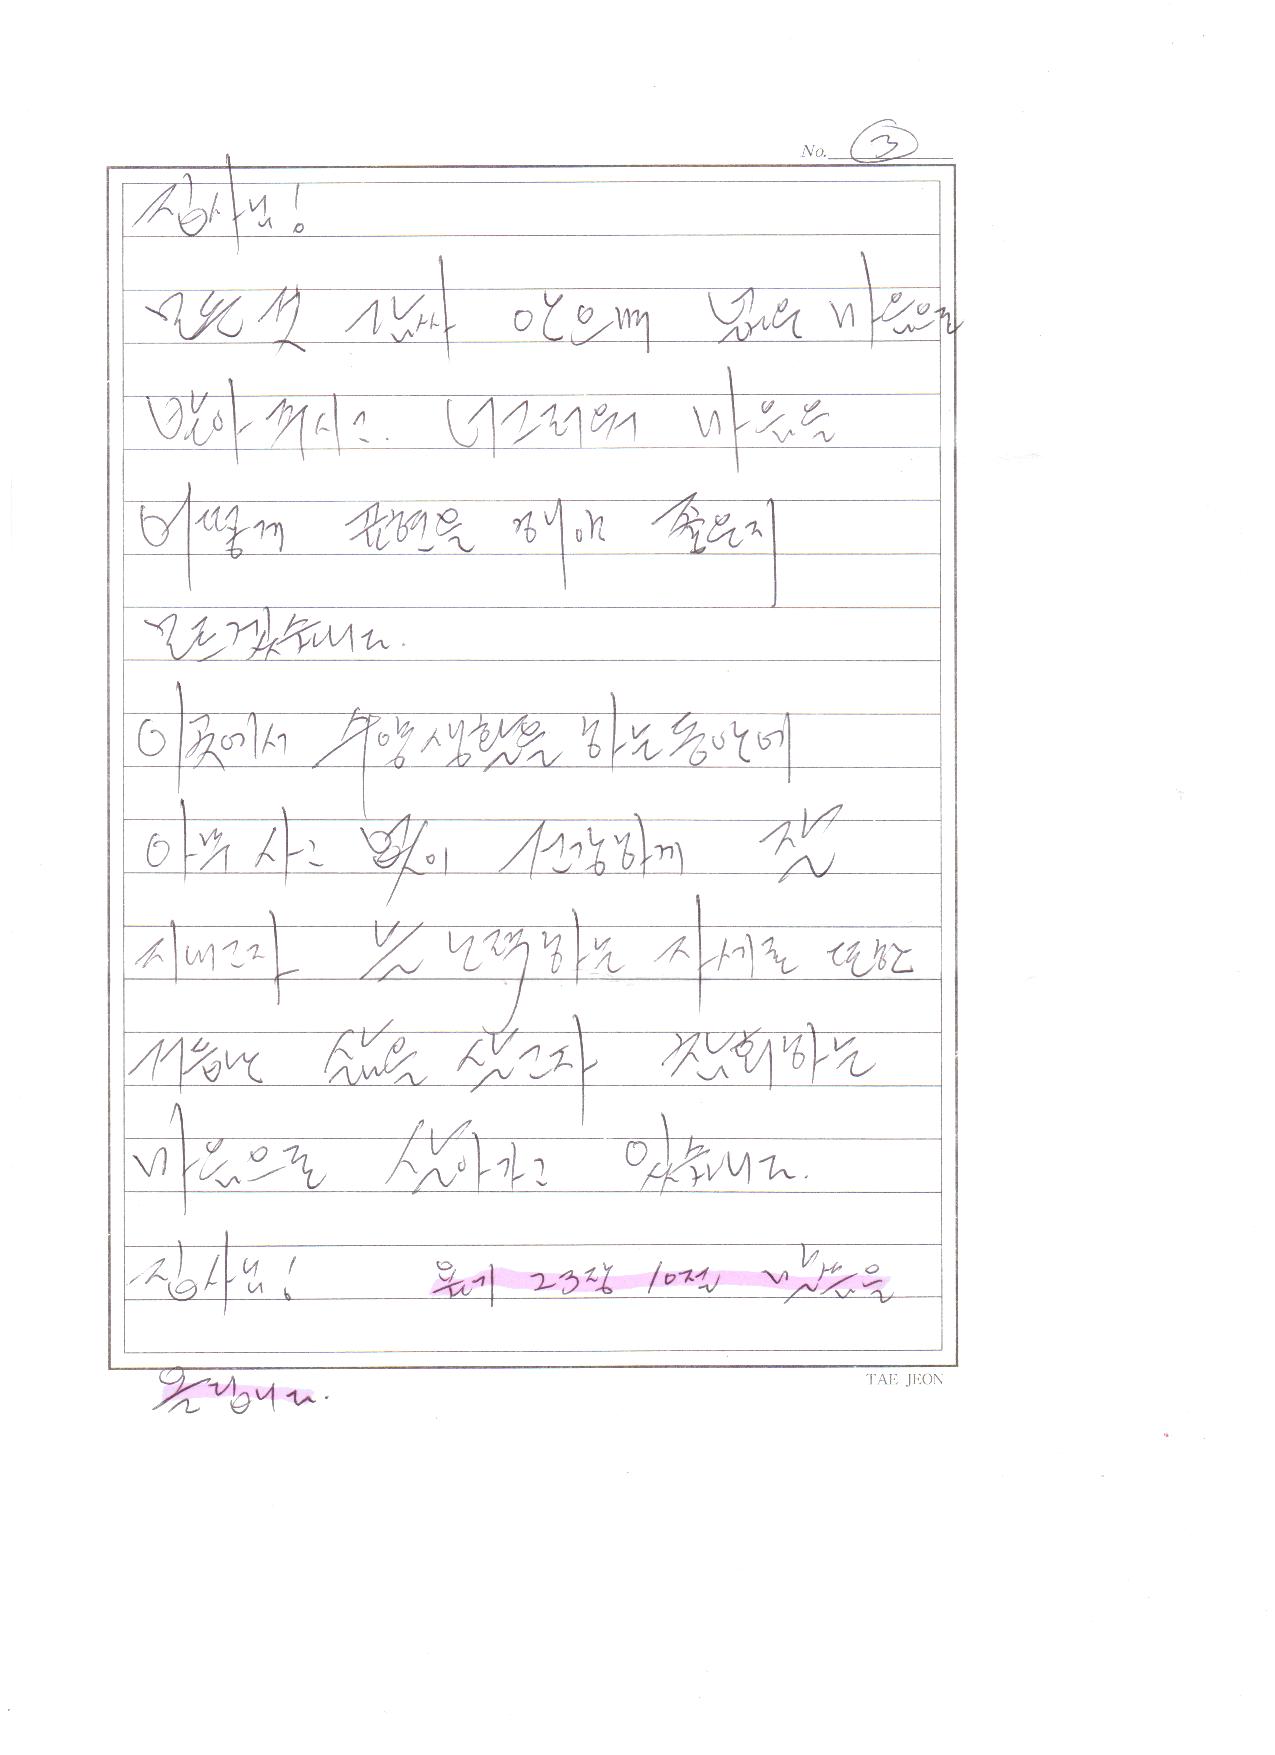 No. 3
집사님!
모든 것 감사 안으며 넓은 마음을
받아 주시고. 너그러워 마음을
어떻게 표현을 해야 좋은지
모르겠습니다.
이곳에서 수양생활을 하는 동안에
아무 사고 없이 건강하게 잘
지내고자 노력하는 자세로 또한
삶을 살고자 참회하는
마음으로 살아가고 있습니다.
집사님! 욥기 23장 10절 말씀을
TAE JEON
올립니다.